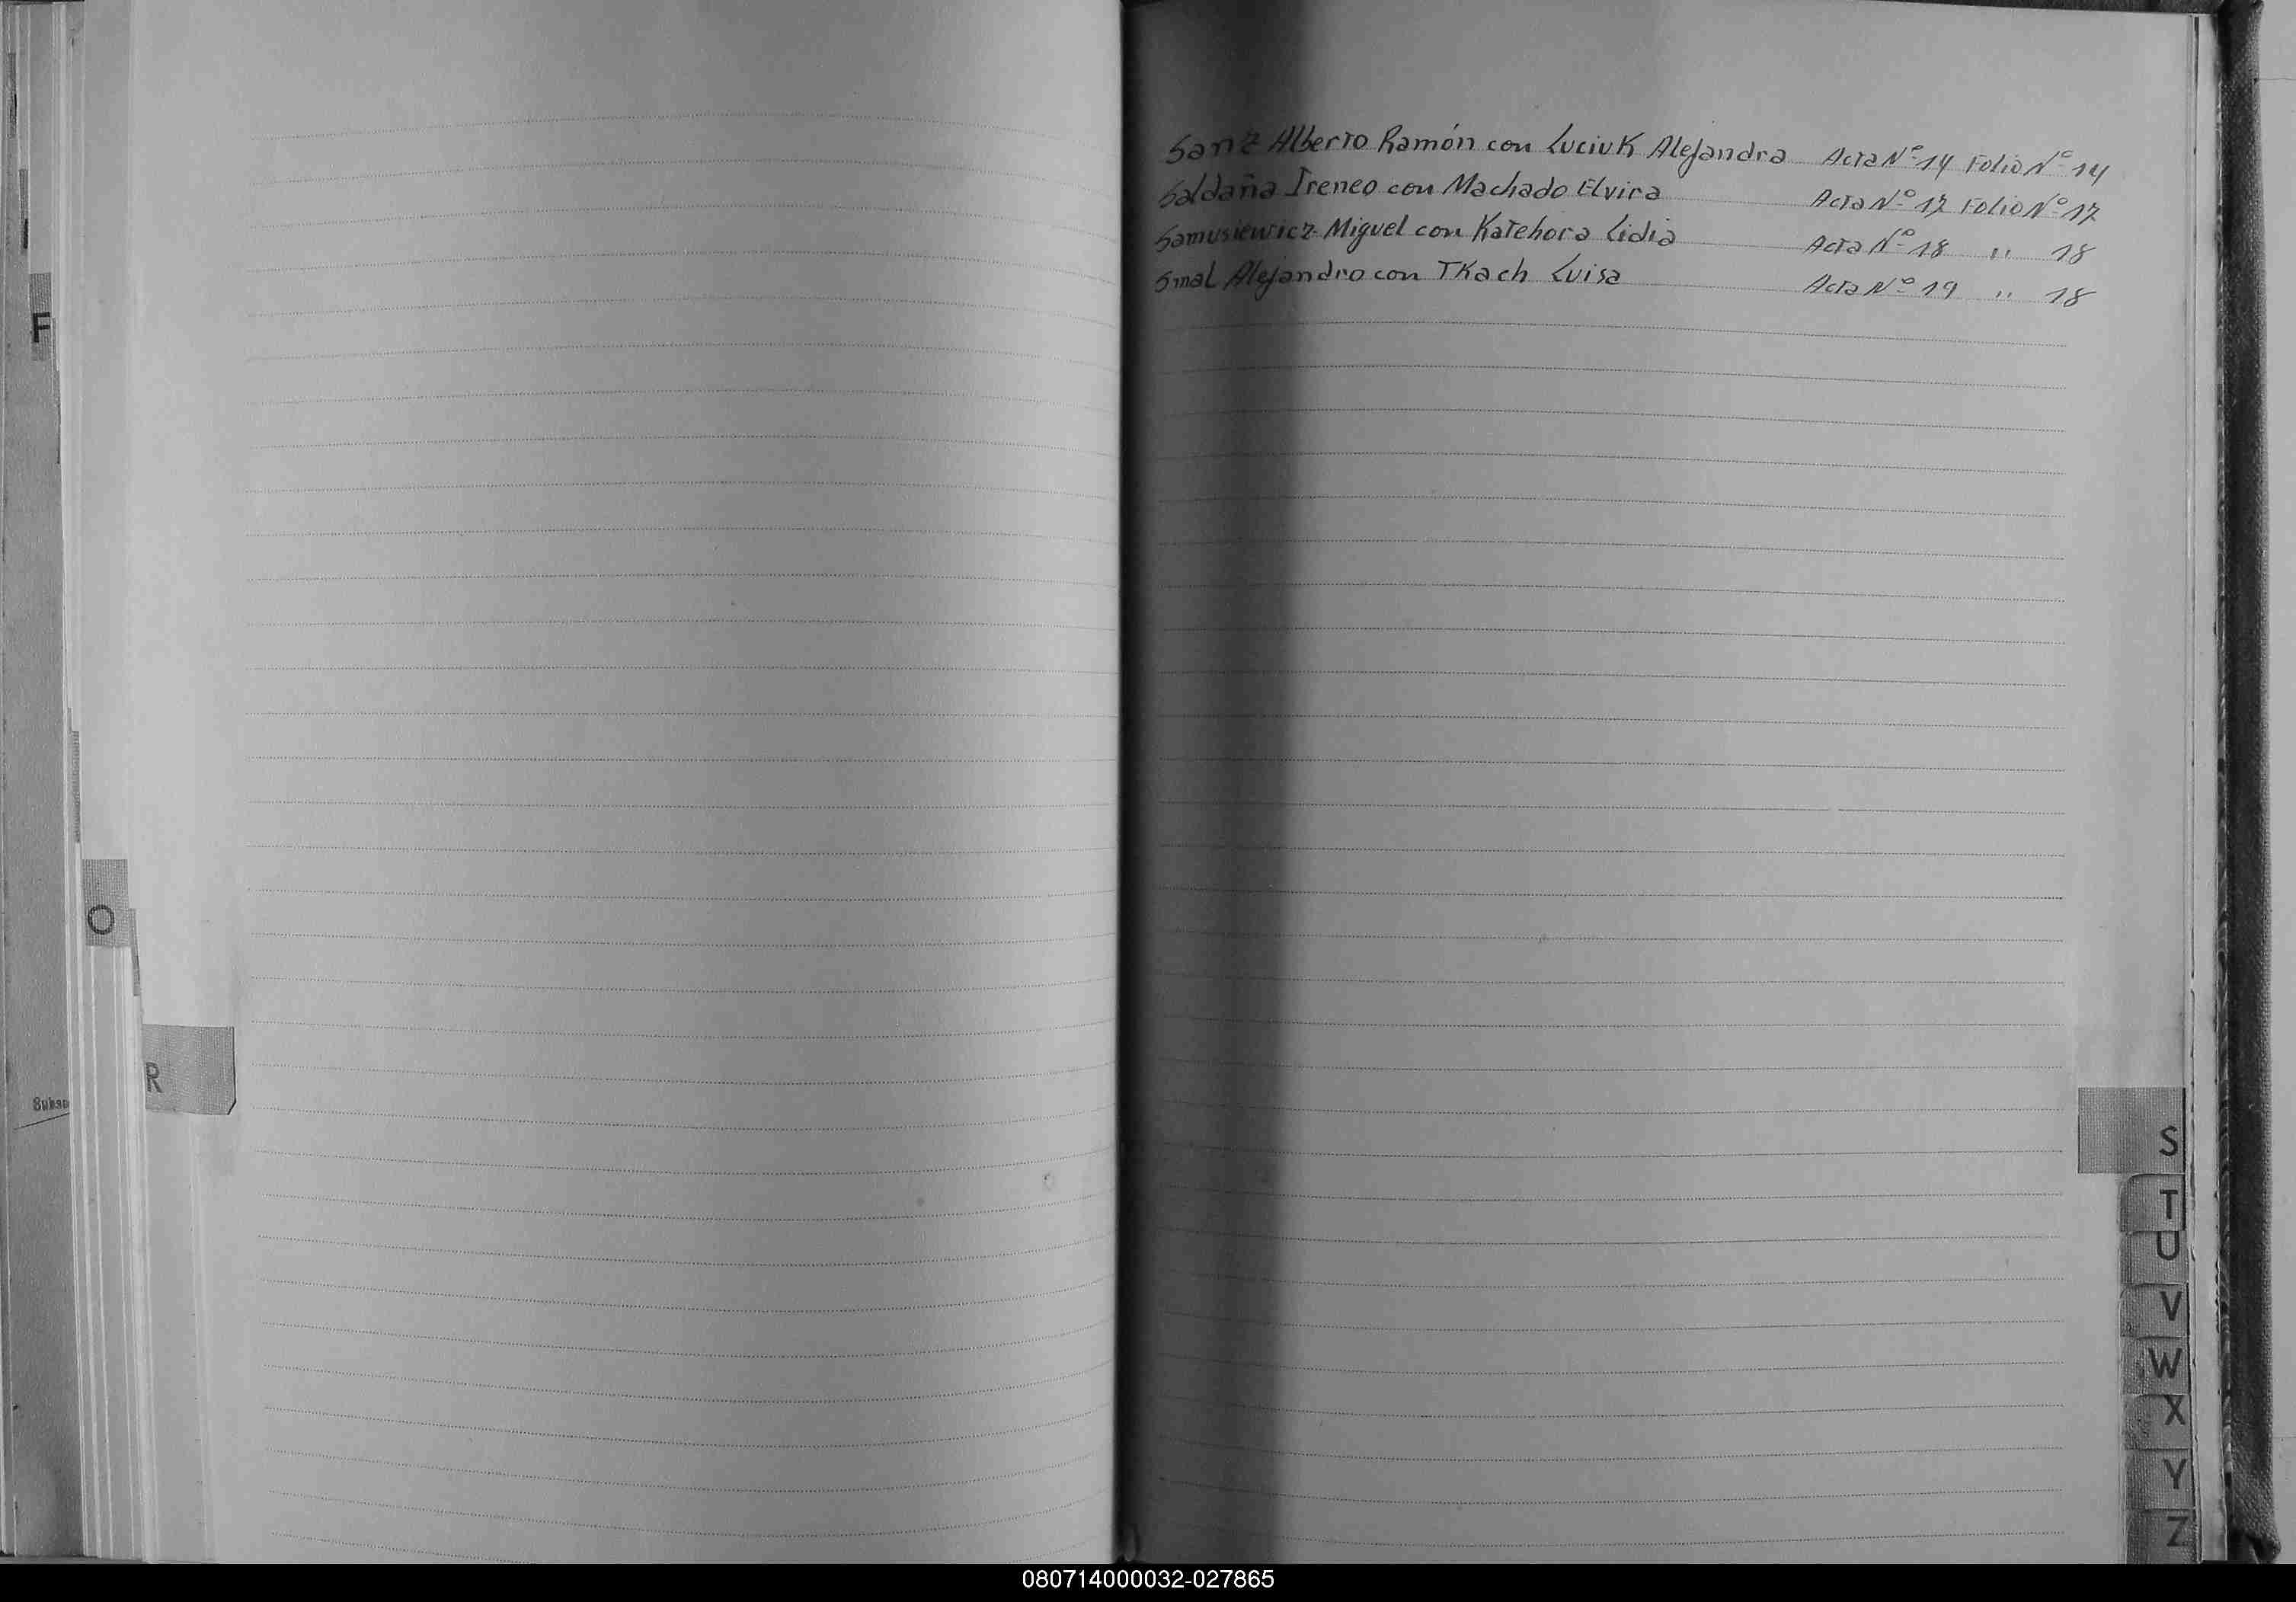 Sanz Alberto Ramón con Luciuk Alejandra Acta Nº 14 Folio Nº 14
Saldaña Ireneo con Machado Elvira Acta Nº 17 Folio Nº 17
Samusiewicz Miguel con Katehora Lidia Acta Nº 18 " 18
Smal Alejandro con Tkach Luisa Acta Nº 19 " 18
F
O
R
S
T
U
V
W
X
Y
Z
080714000032-027865